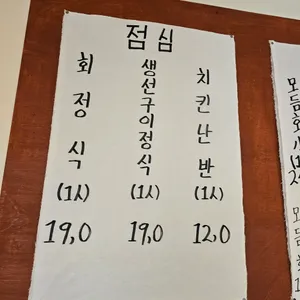 점심
회정식
(1人)
19,0
생선구이정식
(1人)
19,0
치킨난반
(1人)
12,0
모듬회
모듬